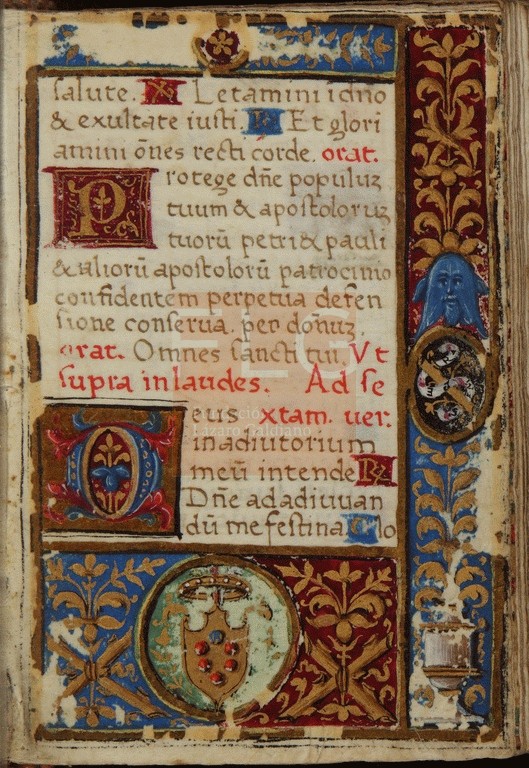 salute. ℣ Letamini i dño
& exultate iusti. ℟ Et glori
amini oñes recti corde. orat.
Protege dñe populuʒ
tuum & apostoloruʒ
tuorū petri & pauli
& aliorū apostolorū patrocinio
confidentem perpetua defen
sione conserua. per doñuʒ
orat. Omnes sancti tui. Vt
supra in laudes. Ad se
Deus xtam. uer.
in adiutorium
meū intende ℟
Dñe ad adiuuan
dū me festina Glo
FLG
Lázaro Galdiano